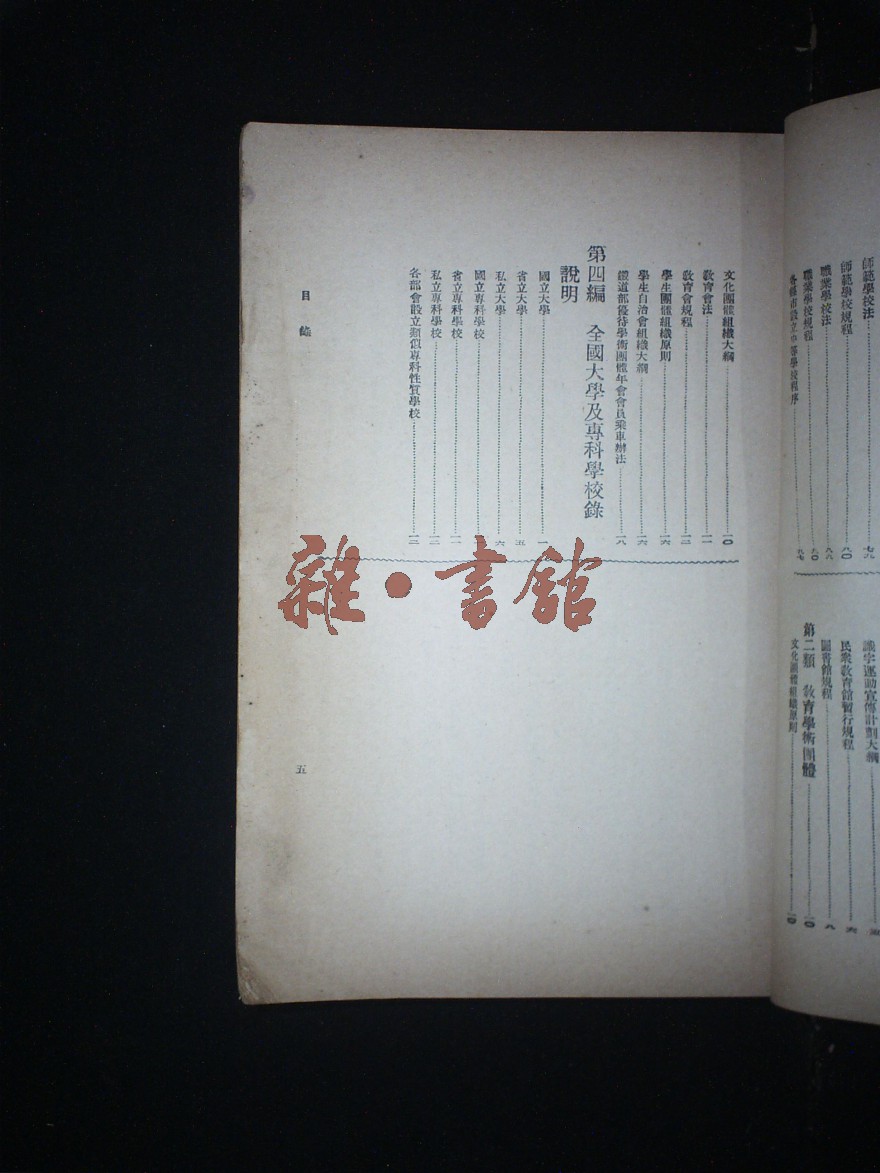 師範學校法……七九
師範學校規程……八〇
職業學校法……八八
職業學校規程……九〇
各縣市設立中等學校程序……九七
識字運動宣傳計劃大綱……五
民衆教育館暫行規程……六
圖書館規程……八
第二類　教育學術團體……一〇
文化團體組織原則……一〇
文化團體組織大綱……一〇
教育會法……一一
教育會規程……一三
學生團體組織原則……一六
學生自治會組織大綱……一六
鐵道部優待學術團體年會會員乘車辦法……一八
第四編　全國大學及專科學校錄
說明
國立大學……一
省立大學……五
私立大學……六
國立專科學校……一一
省立專科學校……一一
私立專科學校……一二
各部會設立類似專科性質學校……一三
目錄
五
雜·書館